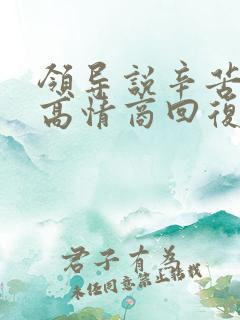 領导説辛苦
高情商回復
君子有为
未经同意禁止搭载